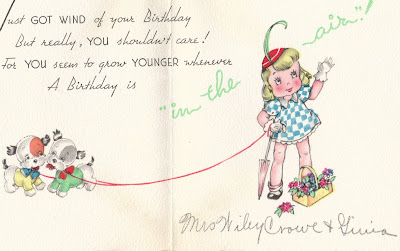 Just GOT WIND of your Birthday
But really, YOU shouldn't care!
For YOU seem to grow YOUNGER whenever
A Birthday is
"in the air"!
Mrs Wiley Crowe &